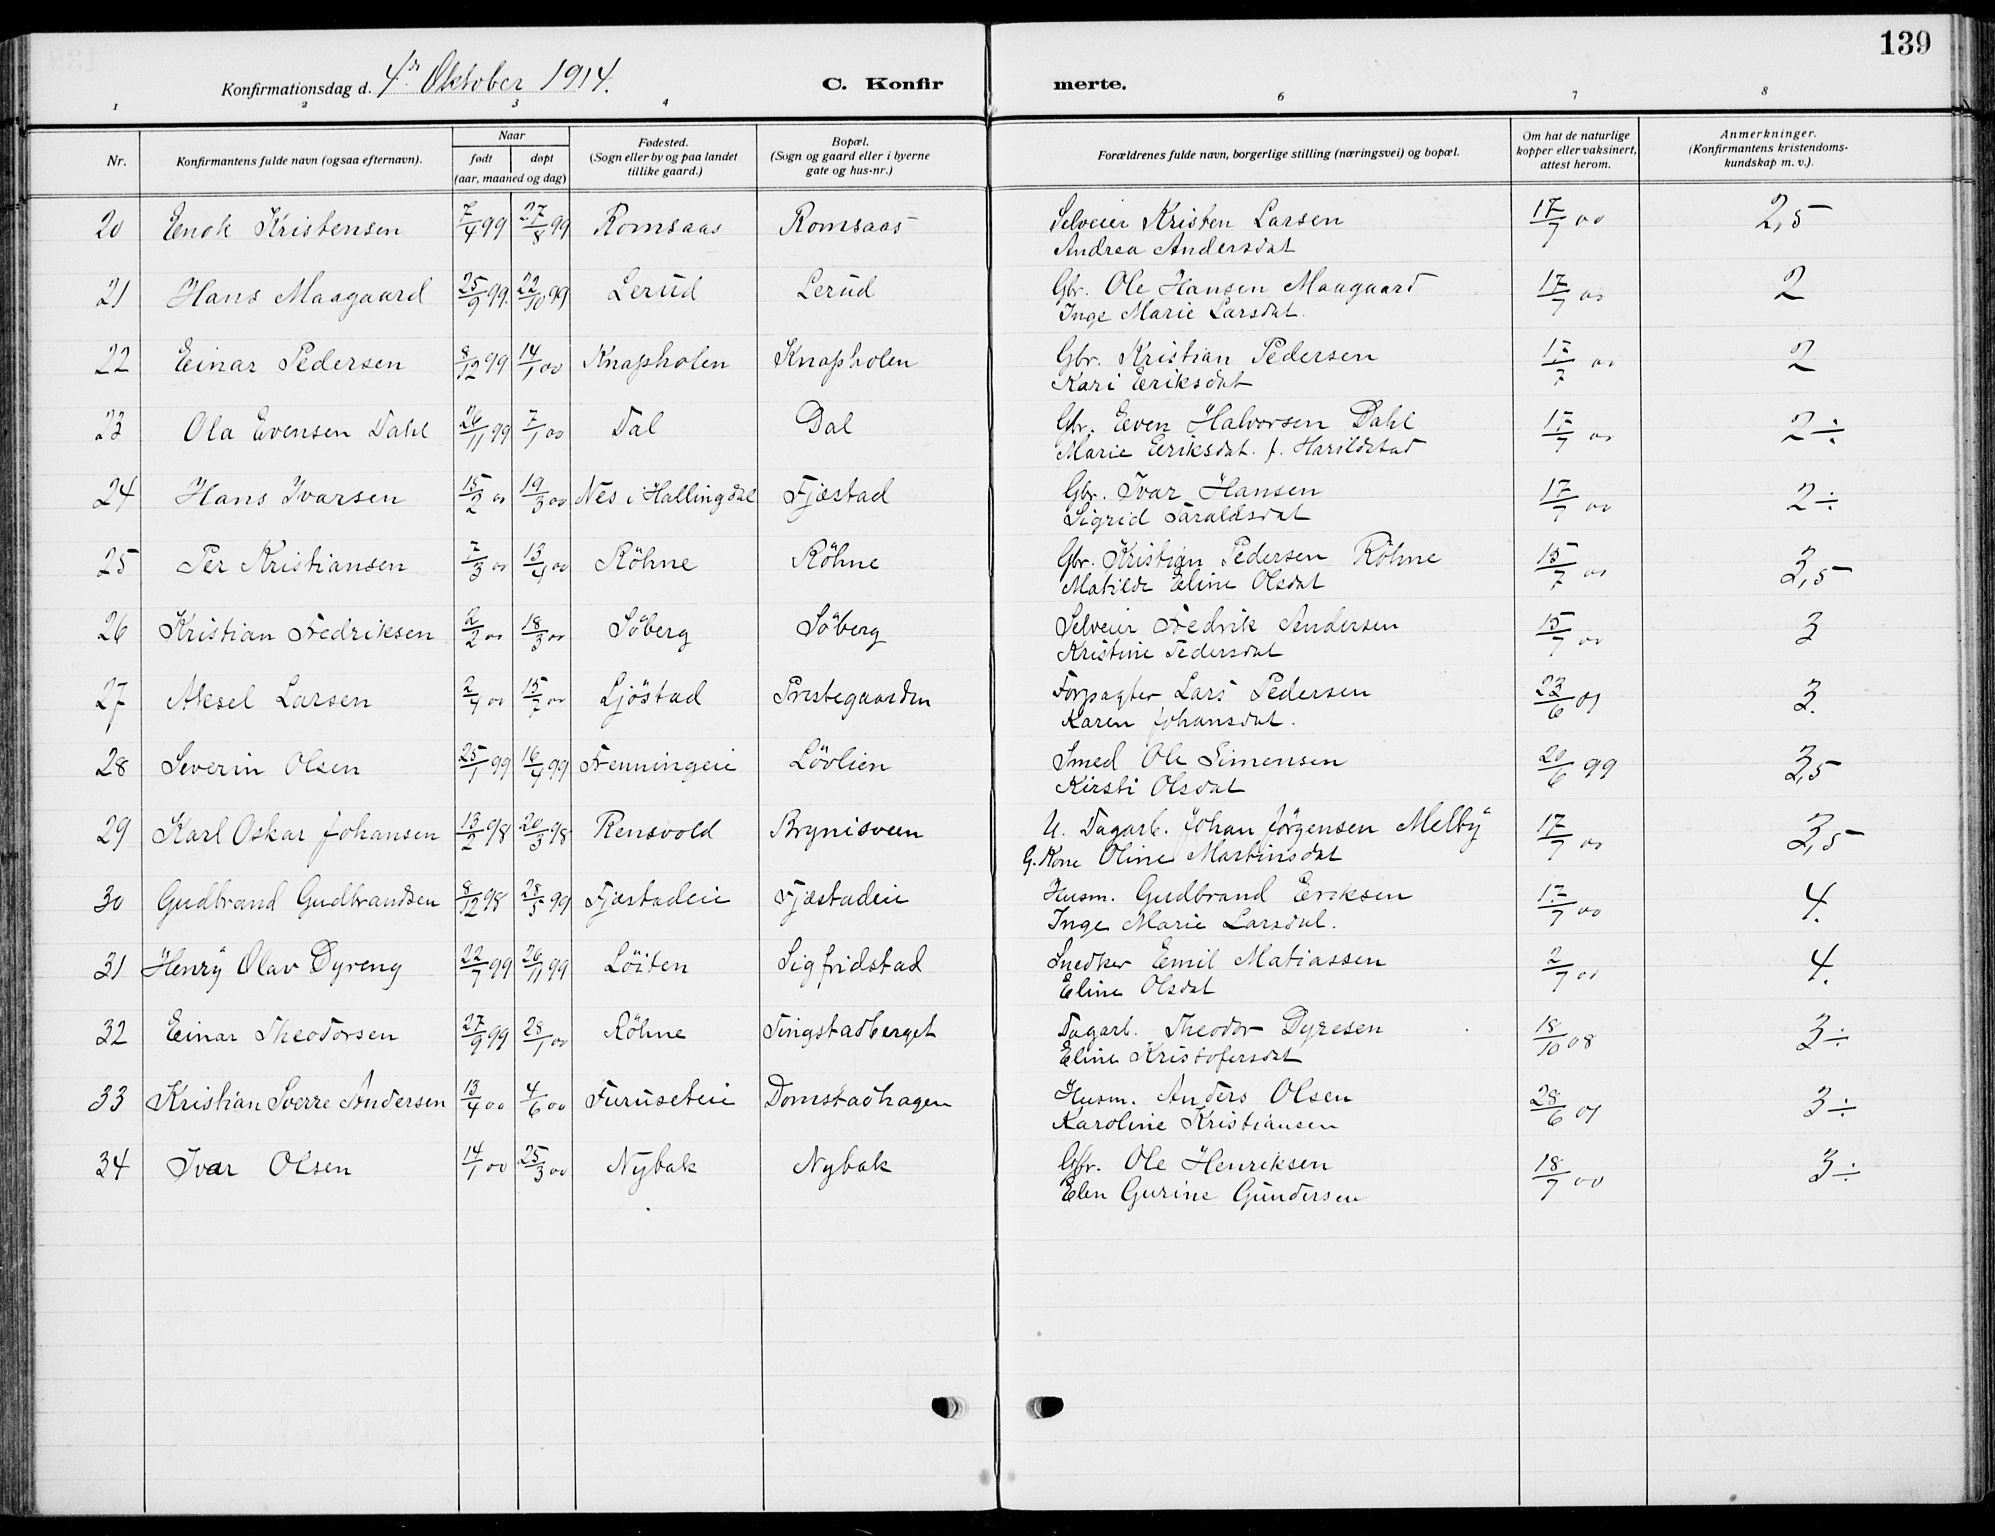 139
Konfirmationsdag d. 4de Oktober 1914.
C. Konfirmerte.
1 2 3 4 6 7 8
Nr. Konfirmantens fulde navn (ogsaa efternavn). Naar født døpt (aar, maaned og dag) Fødested. (Sogn eller by og paa landet tillike gaard.) Bopæl. (Sogn og gaard eller i byerne gate og hus-nr.) Forældrenes fulde navn, borgerlige stilling (næringsvei) og bopæl. Om hat de naturlige kopper eller vaksinert, attest herom. Anmerkninger. (Konfirmantens kristendomskundskap m. v.).
20 Enok Kristensen 7/4 99 27/8 99 Romsaas Romsaas Selveier Kristen Larsen 17/7 00 2,5
Andrea Andersdat
21 Hans Maagaard 25/9 99. 22/10 99 Lerud Lerud Gbr. Ole Hansen Maagaard 17/7 00 2
Inge Marie Larsdat.
22 Einar Pedersen 8/12 99 14/1 00 Knapholen Knapholen Gbr. Kristian Pedersen 17/7 00 2
Kari Eriksdat
23 Ola Evensen Dahl 26/11 99 7/1 00 Dal Dal Gbr. Even Halvorsen Dahl 17/7 00 2÷
Marie Eriksdat. f. Harildstad
24 Hans Ivarsen 15/2 00 19/3 00 Nes i Hallingdal Fjæstad Gbr. Ivar Hansen 17/7 00 2÷
Sigrid Taraldsdat
25 Per Kristiansen 7/3 00 13/4 00 Röhne Röhne Gbr. Kristian Pedersen Röhne 15/7 00 3,5
Matilde Eline Olsdat
26 Kristian Fredriksen 2/2 00 18/3 00 Söberg Söberg Selveier Fredrik Andersen 15/7 00 3
Kristine Pedersdat
27 Aksel Larsen 2/4 00 15/7 00 Ljöstad Prestegaarden Forpagter Lars Pedersen 23/6 01 3.
Karen Johansdat.
28 Severin Olsen 25/1 99 16/4 99 Frenningeie Lövlien Smed Ole Simensen 20/6 99 3,5
Kirsti Olsdat
29 Karl Oskar Johansen 13/2 98 20/3 98 Rensvold Brynisveen U. Dagarb. Johan Jörgensen Melby 17/7 00 3,5
G. Kone Oline Martinsdat
30 Gudbrand Gudbrandsen 8/12 98 28/5 99 Fjæstadeie Fjæstadeie Husm. Gudbrand Eriksen 17/7 00 4.
Inge Marie Larsdat.
31 Henry Olav Dyreng 22/7 99 26/11 99 Löiten Sigfridstad Snedker Emil Matiassen 2/7 01 4.
Eline Olsdat
32 Einar Theodorsen 27/9 99 28/1 00 Röhne Tingstadberget Dagarb. Theodor Dyresen 18/10 08 3÷
Eline Kristofersdat
33 Kristian Sverre Andersen 13/4 00 4/6 00 Furuseteie Domstadhagen Husm. Anders Olsen 28/6 01 3÷
Karoline Kristiansen
34 Ivar Olsen 14/1 00 25/3 00 Nybak Nybak Gbr. Ole Henriksen 18/7 00 3÷
Elen Gurine Gundersen